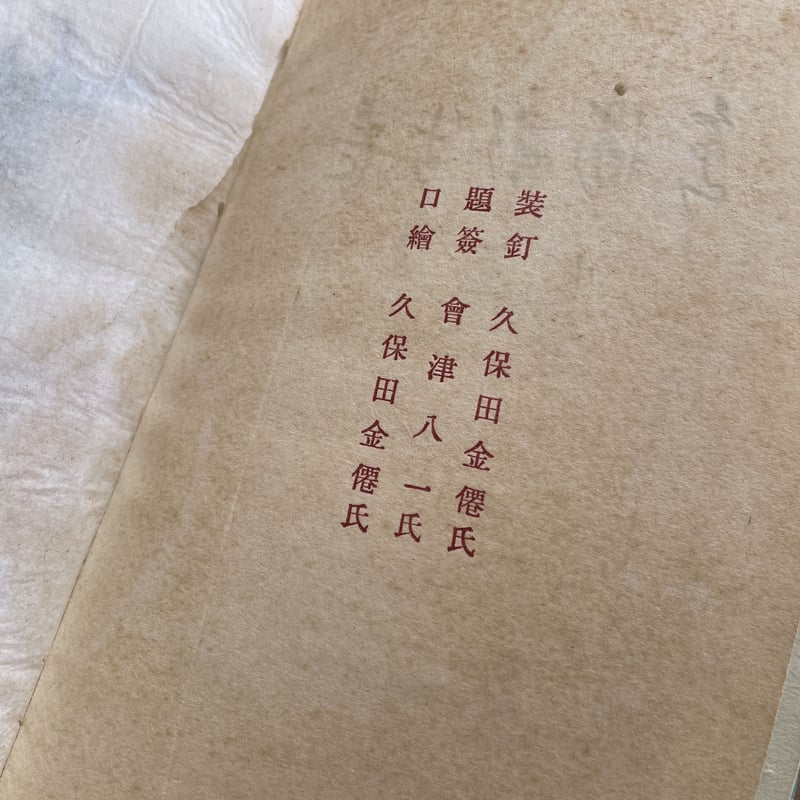 装釘 久保田金僊氏
題簽 會津八一氏
口繪 久保田金僊氏